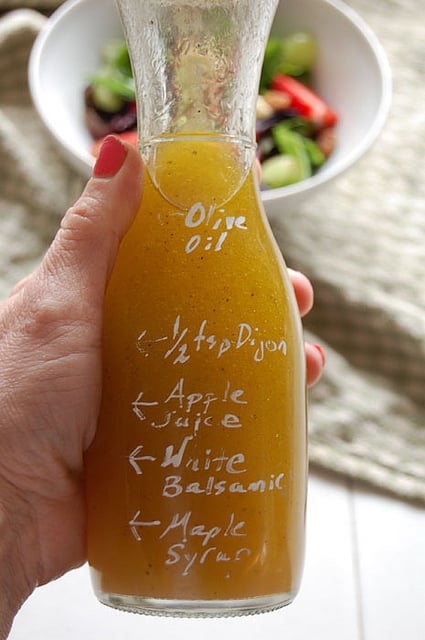 Olive
Oil
← ½ tsp Dijon
← Apple
Juice
← White
Balsamic
← Maple
Syrup